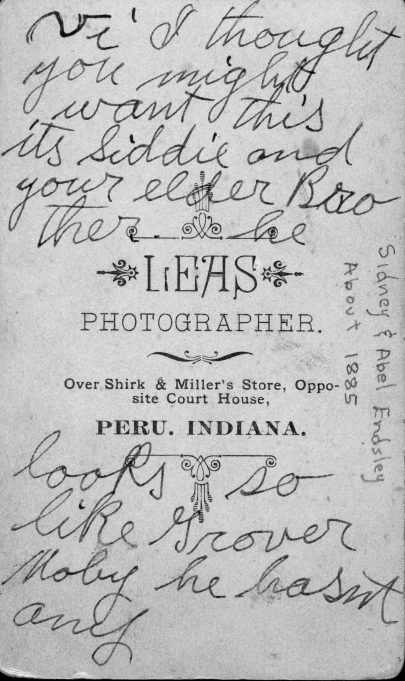 Vi' I thought
you might
want this
its Siddie and
your elder Bro
ther he
LEAS
PHOTOGRAPHER.
Over Shirk & Miller's Store, Oppo-
site Court House,
PERU. INDIANA.
looks so
like Grover
Maby he hasnt
any
Sidney & Abel Endsley
About 1885